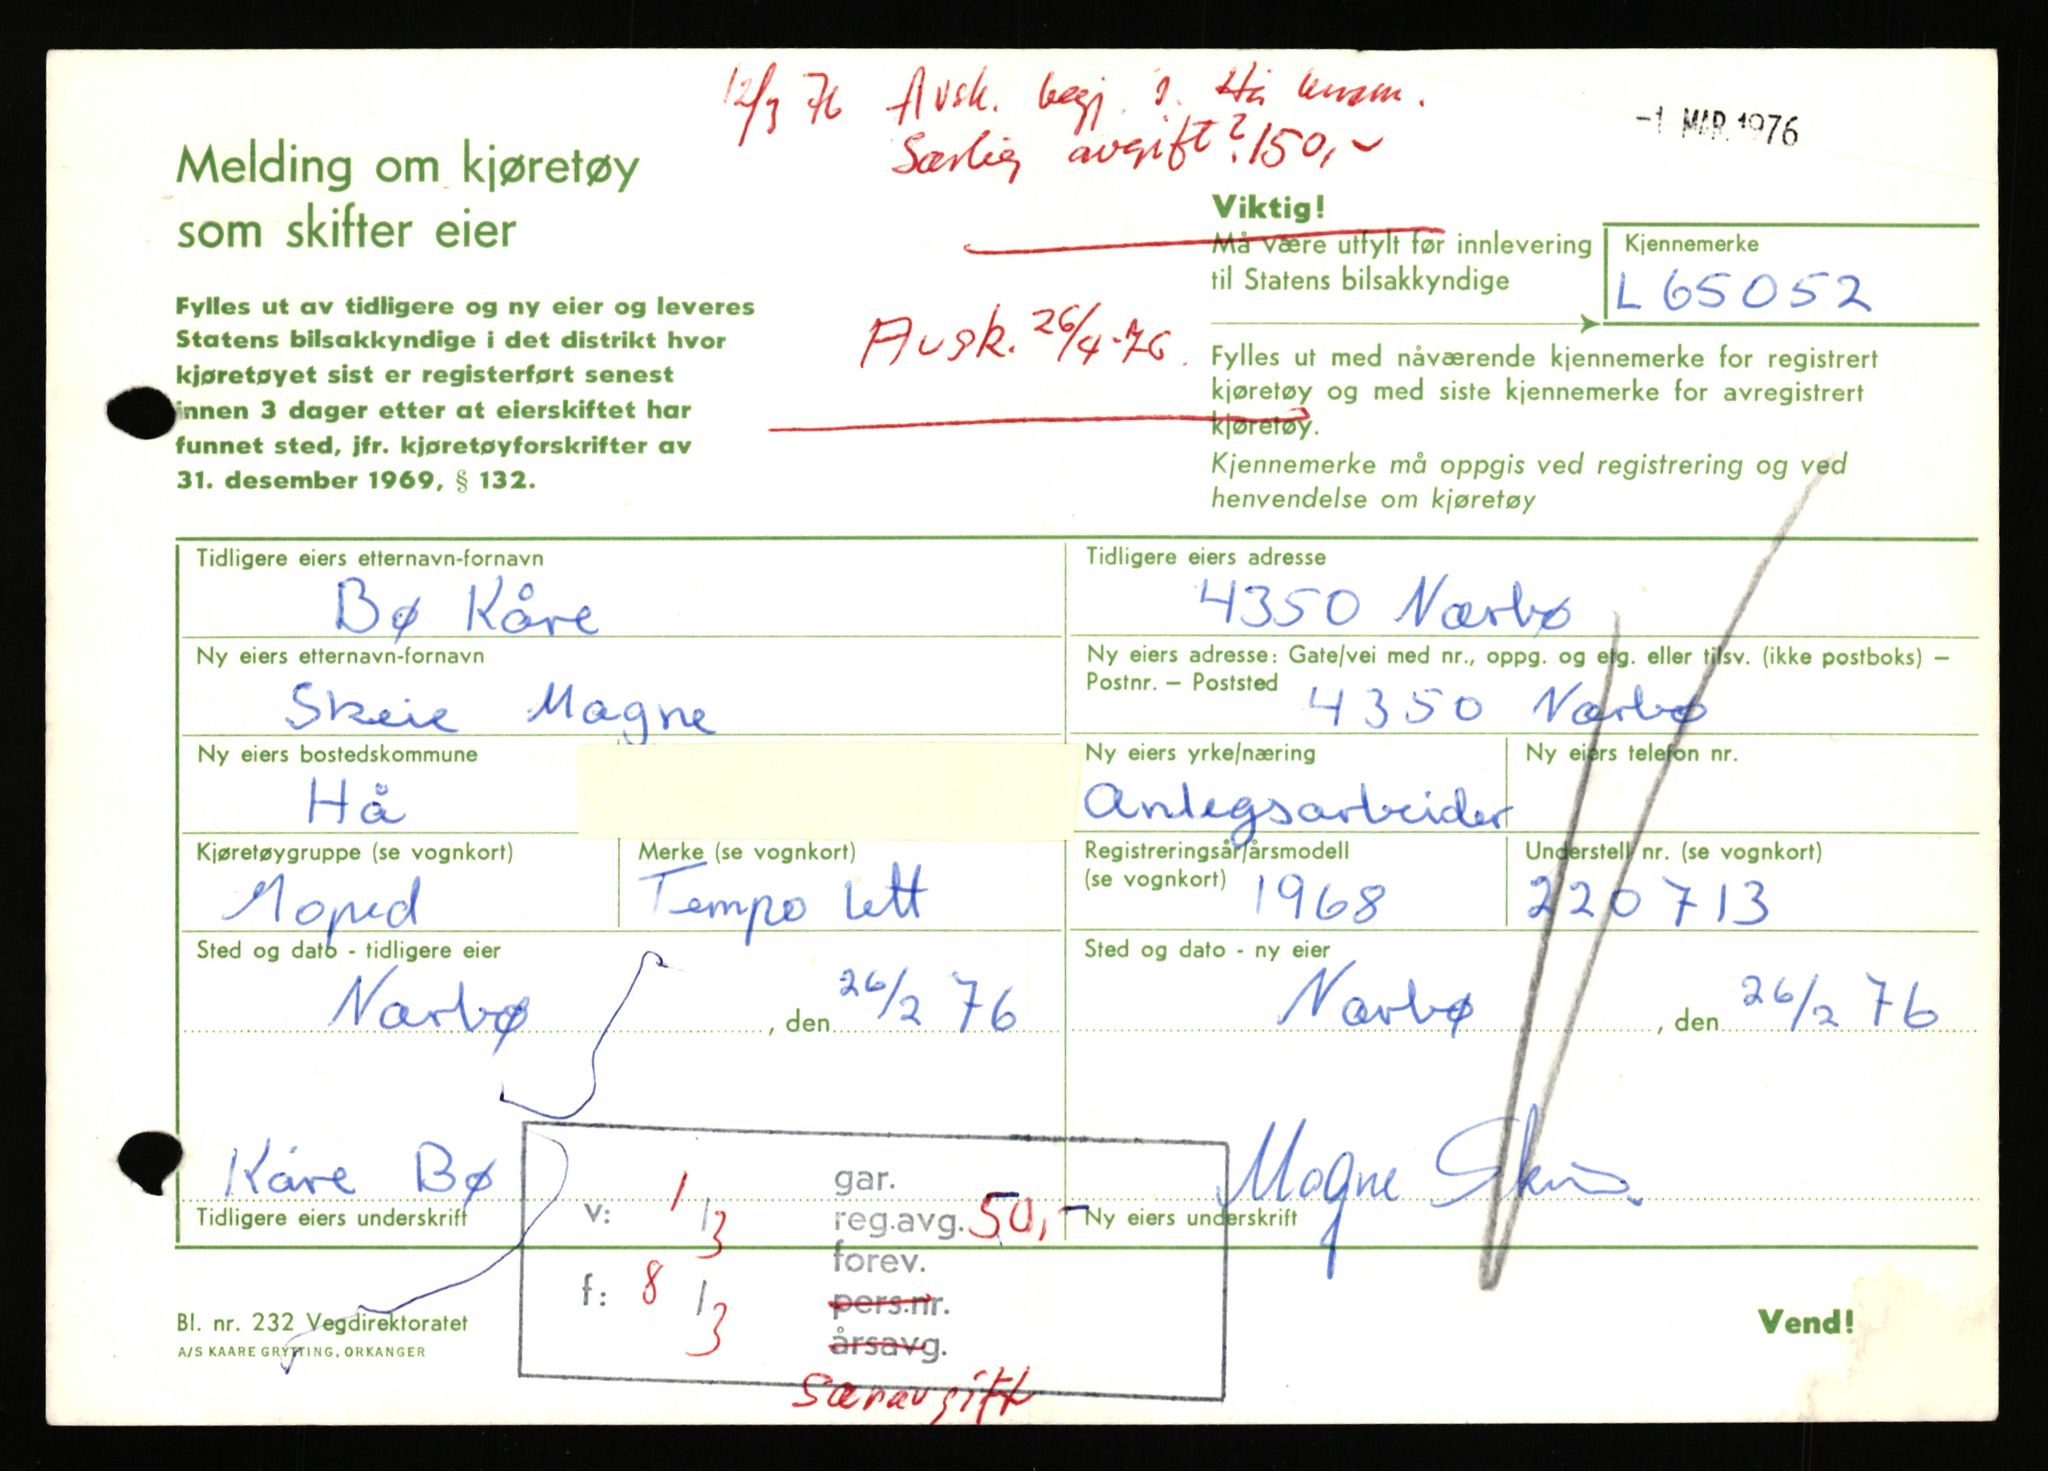 12/3 76 Avsk. begj. i Hå lensm.
Særlig avgift? 150,-
-1 MAR. 1976
Melding om kjøretøy
som skifter eier
Fylles ut av tidligere og ny eier og leveres
Statens bilsakkyndige i det distrikt hvor
kjøretøyet sist er registerført senest
innen 3 dager etter at eierskiftet har
funnet sted, jfr. kjøretøyforskrifter av
31. desember 1969, § 132.
Avsk. 26/4-76.
Viktig!
Må være utfylt før innlevering
til Statens bilsakkyndige
Kjennemerke
L 65052
Fylles ut med nåværende kjennemerke for registrert
kjøretøy og med siste kjennemerke for avregistrert
kjøretøy.
Kjennemerke må oppgis ved registrering og ved
henvendelse om kjøretøy
Tidligere eiers etternavn-fornavn
Bø Kåre
Tidligere eiers adresse
4350 Nærbø
Ny eiers etternavn-fornavn
Skeie Magne
Ny eiers adresse: Gate/vei med nr., oppg. og etg. eller tilsv. (ikke postboks) –
Postnr. – Poststed 4350 Nærbø
Ny eiers bostedskommune
Hå
Ny eiers yrke/næring
Anlegsarbeider
Ny eiers telefon nr.
Kjøretøygruppe (se vognkort)
Moped
Merke (se vognkort)
Tempo lett
Registreringsår/årsmodell
(se vognkort) 1968
Understell nr. (se vognkort)
220713
Sted og dato - tidligere eier
Nærbø, den 26/2 76
Sted og dato - ny eier
Nærbø, den 26/2 76
Kåre Bø
Tidligere eiers underskrift
Magne Skeie
Ny eiers underskrift
v: 1/3
f: 8/3
gar.
reg.avg. 50,-
forev.
pers.nr.
årsavg.
Særavgift
Bl. nr. 232 Vegdirektoratet
A/S KAARE GRYTTING, ORKANGER
Vend!